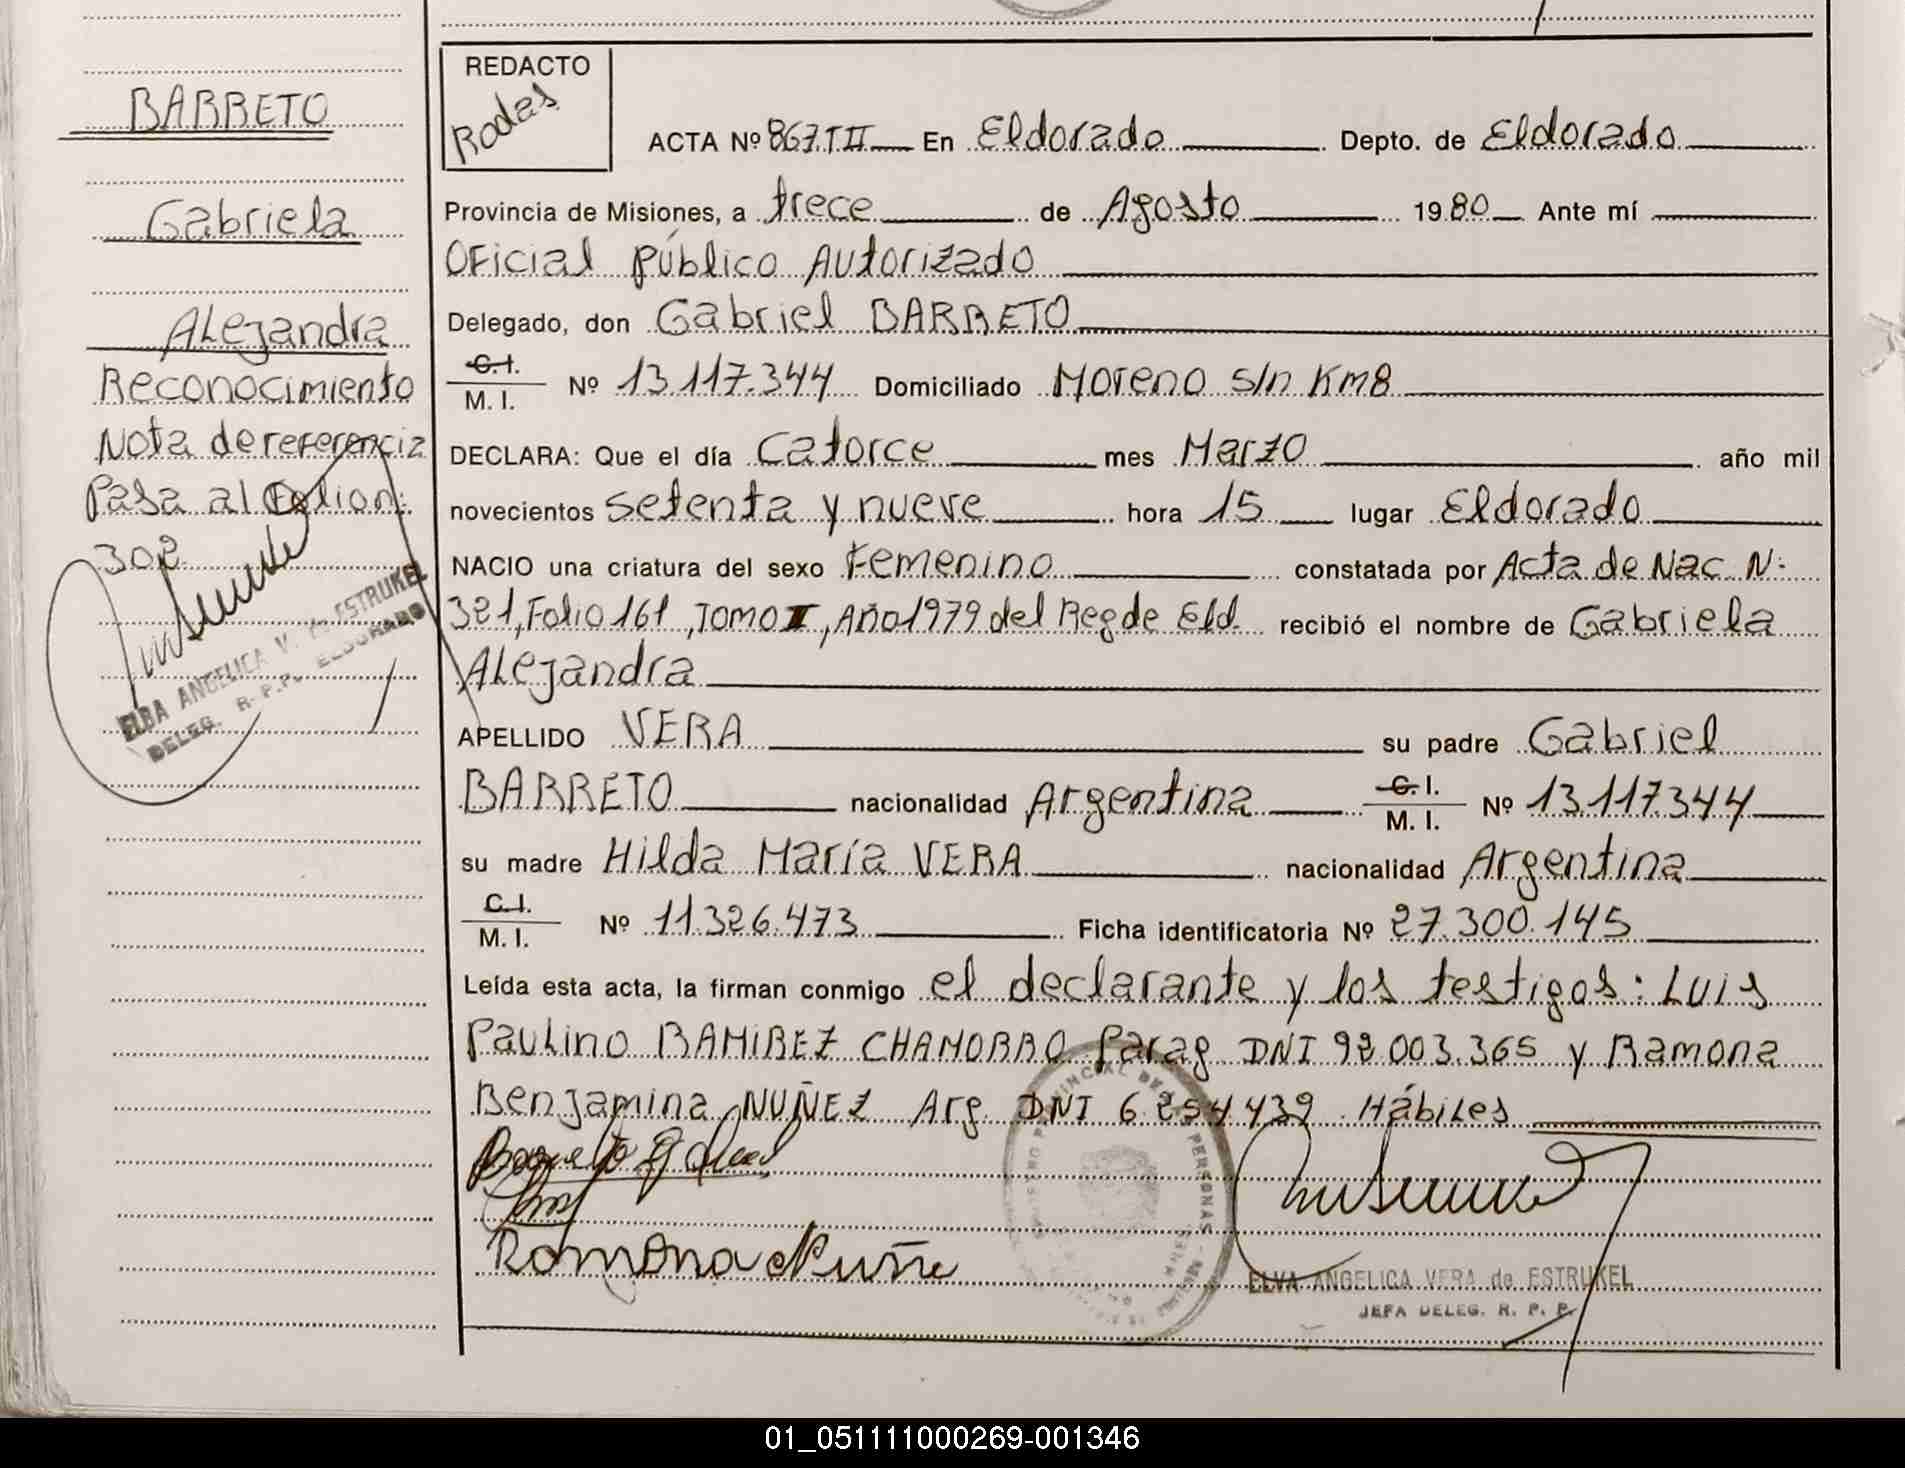 BARRETO
Gabriela
Alejandra
Reconocimiento
Nota de referencia
Pasa al Folio n:
302
ELBA ANGELICA V. de ESTRUKEL
DELEG. R. P. P. ELDORADO
REDACTO
Rodas
ACTA Nº 867.TII En Eldorado Depto. de Eldorado
Provincia de Misiones, a trece de Agosto 1980 Ante mí
Oficial Público Autorizado
Delegado, don Gabriel BARRETO
C.I. / M. I. Nº 13.117.344 Domiciliado Moreno s/n Km8
DECLARA: Que el día Catorce mes Marzo año mil
novecientos setenta y nueve hora 15 lugar Eldorado
NACIO una criatura del sexo Femenino constatada por Acta de Nac. N:
321, Folio 161, TOMO II, Año 1979 del Reg de Eld. recibió el nombre de Gabriela
Alejandra
APELLIDO VERA su padre Gabriel
BARRETO nacionalidad Argentina C.I. / M. I. Nº 13.117.344
su madre Hilda María VERA nacionalidad Argentina
C.I. / M. I. Nº 11.326.473 Ficha identificatoria Nº 27.300.145
Leída esta acta, la firman conmigo el declarante y los testigos: Luis
Paulino RAMIREZ CHAMORRO Parag DNI 92.003.365 y Ramona
Benjamina NUÑEZ Arg. DNI 6.254.439 Hábiles
Barreto Gabriel
Ramona Nuñe
ELVA ANGELICA VERA de ESTRUKEL
JEFA DELEG. R. P. P.
01_051111000269-001346